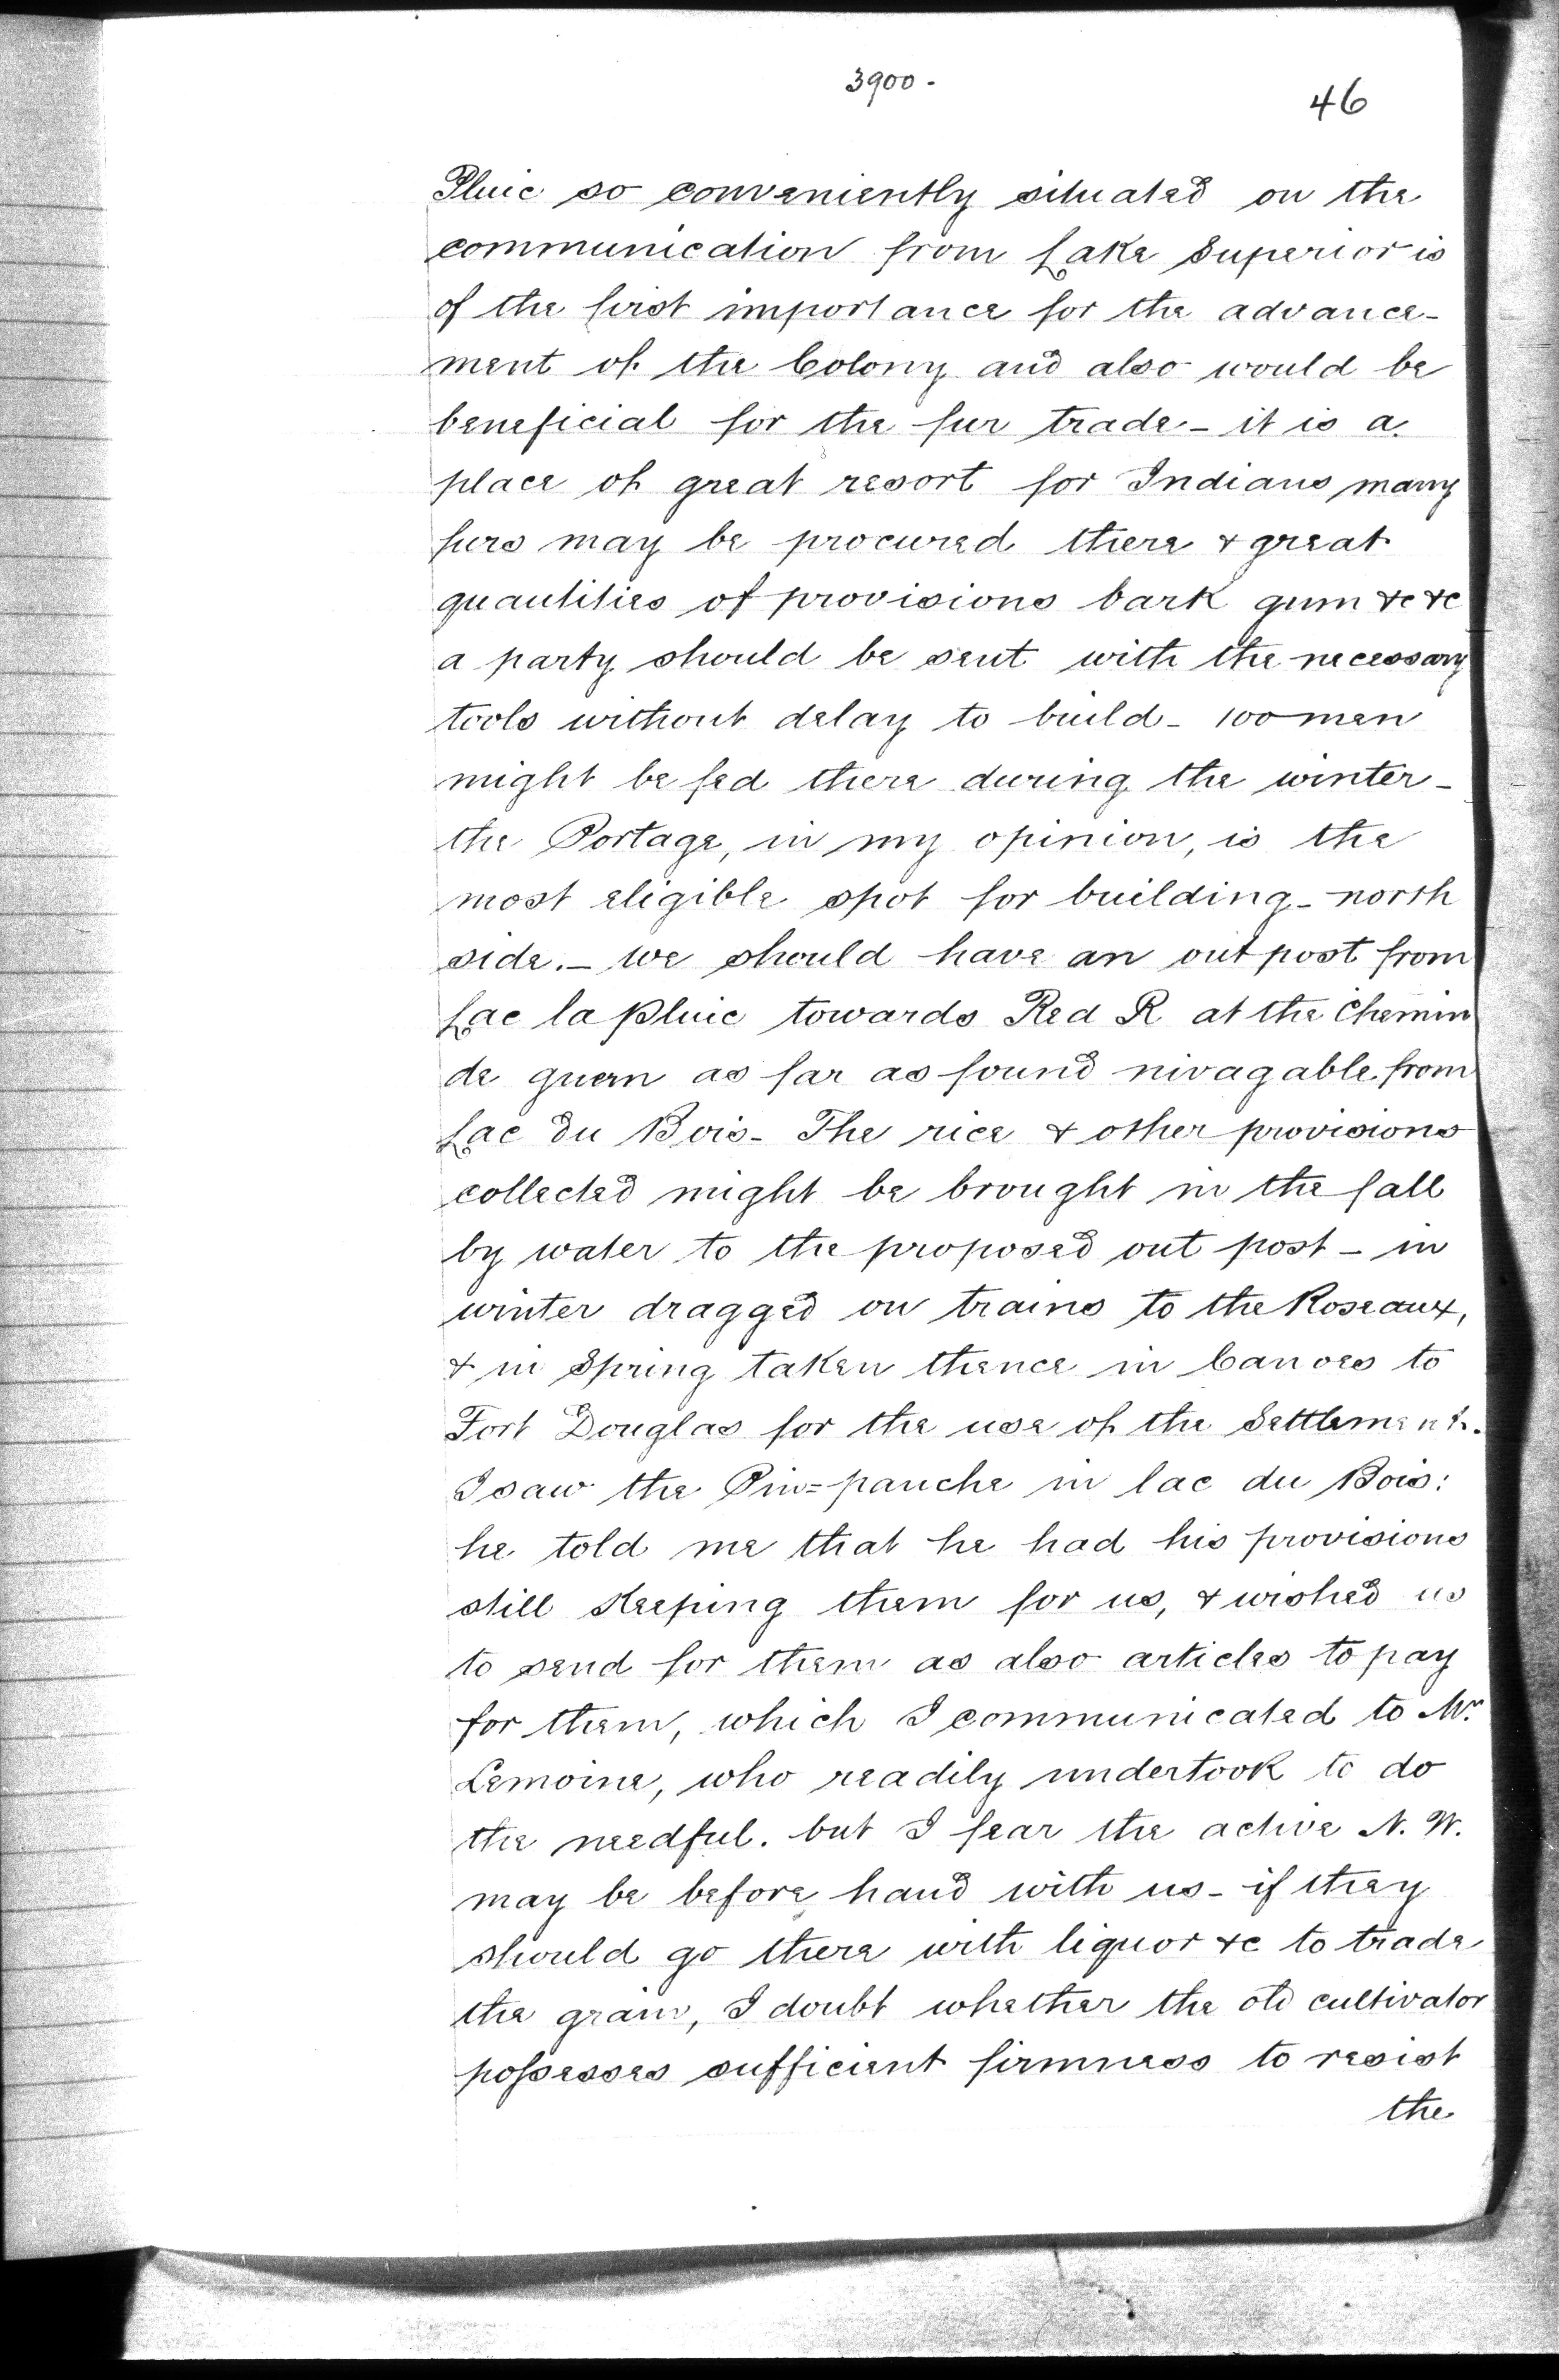 3900.
46
Pluie so conveniently situated on the
communication from Lake Superior is
of the first importance for the advance-
ment of the Colony and also would be
beneficial for the fur trade - it is a
place of great resort for Indians many
furs may be procured there & great
quantities of provisions bark gum &c &c
a party should be sent with the necessary
tools without delay to build - 100 men
might be fed there during the winter -
the Portage, in my opinion, is the
most eligible spot for building - north
side. - We should have an out post from
Lac la Pluie towards Red R at the Chemin
de guern as far as found nivagable from
Lac du Bois - The rice & other provisions
collected might be brought in the fall
by water to the proposed out post - in
winter dragged on trains to the Roseaux,
& in Spring taken thence in Canoes to
Fort Douglas for the use of the Settlement.
I saw the Pin=panche in lac du Bois:
he told me that he had his provisions
still keeping them for us, & wished us
to send for them as also articles to pay
for them, which I communicated to Mr.
Lemoine, who readily undertook to do
the needful. but I fear the active N. W.
may be before hand with us - if they
should go there with liquor &c to trade
the grain, I doubt whether the old cultivator
possesses sufficient firmness to resist
the